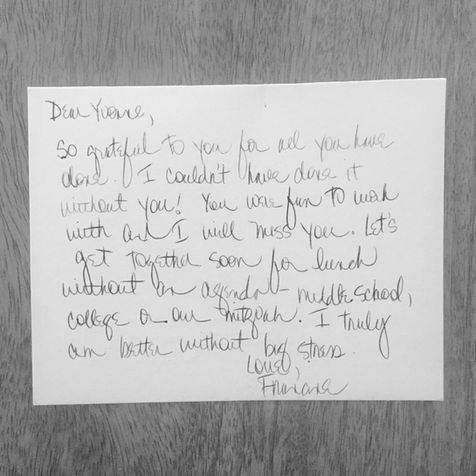 Dear Yvonne,
So grateful to you for all you have
done. I couldn't have done it
without you! You were fun to work
with and I will miss you. Let's
get together soon for lunch
without an agenda - middle school,
college or our mitzvah. I truly
am better without big stress.
Love,